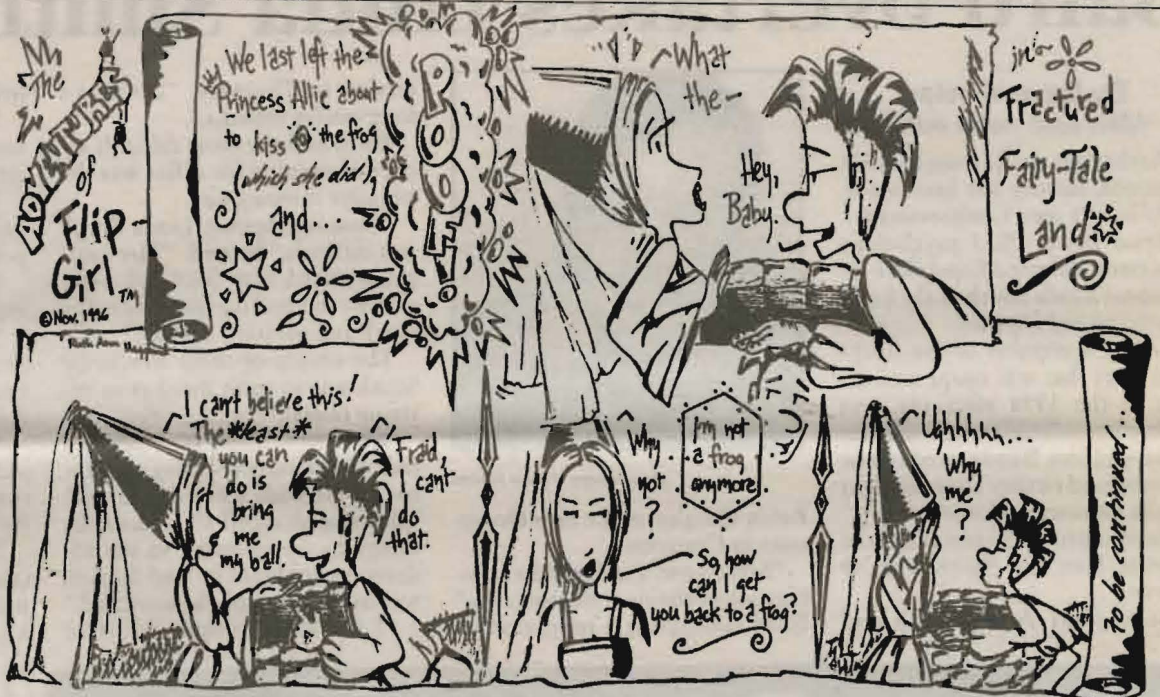 The
ADVENTURES
of
Flip
Girl™
©Nov. 1996
Ruth Ann
We last left the
Princess Allie about
to kiss the frog
(which she did),
and...
POOF!
What
the-
Hey,
Baby.
in
Fractured
Fairy-Tale
Land
I can't believe this!
The *least*
you can
do is
bring
me
my ball.
'Fraid
I can't
do
that.
Why
not
?
I'm not
a frog
anymore.
So, how
can I get
you back to a frog?
Ughhhhh...
Why
me
?
To be continued...